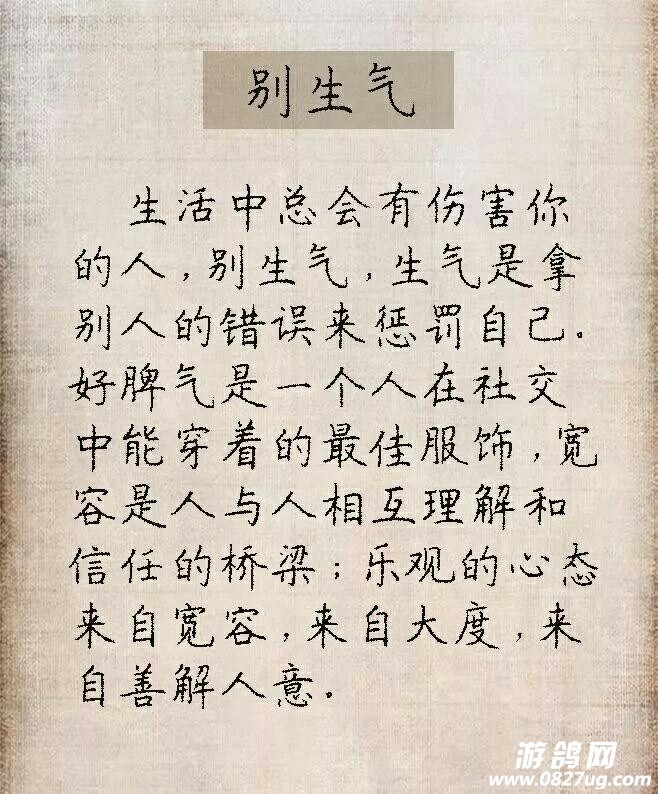 别生气
生活中总会有伤害你
的人，别生气，生气是拿
别人的错误来惩罚自己。
好脾气是一个人在社交
中能穿着的最佳服饰，宽
容是人与人相互理解和
信任的桥梁；乐观的心态
来自宽容，来自大度，来
自善解人意。
游鸽网
www.0827ug.com